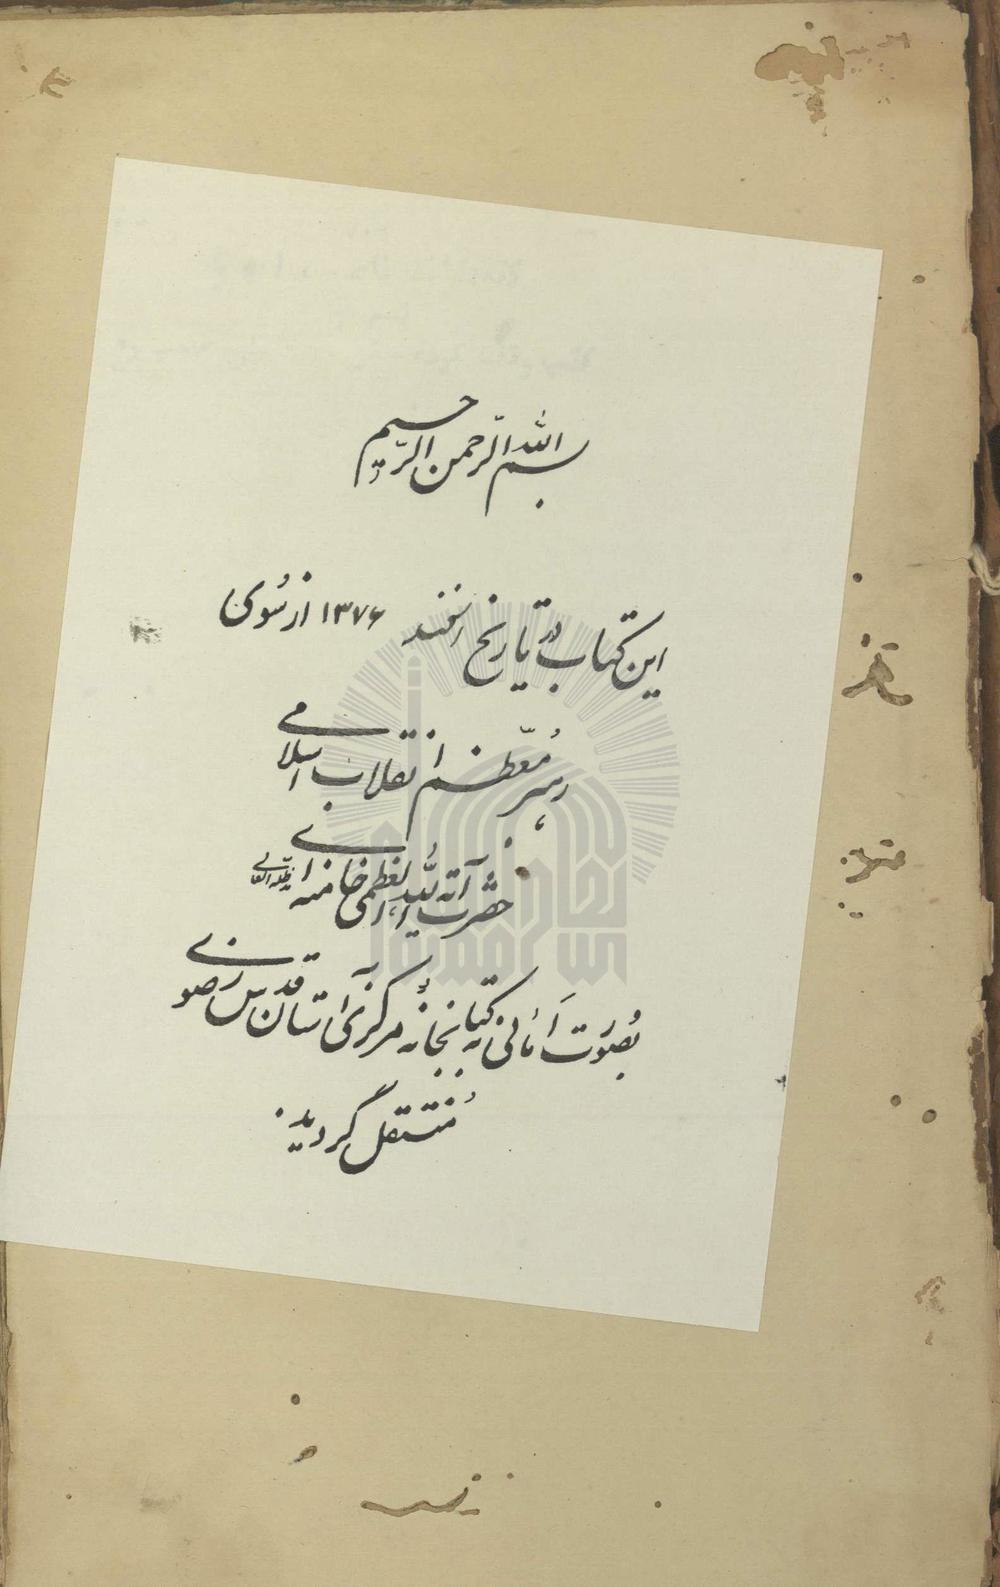 بسم الله الرّحمن الرّحیم
این کتاب در تاریخ اسفند ۱۳۷۶ از سُوی
رهبر مُعّظم انقلاب اسلامی
حضرت آیة اللّه العظمی خامنه ای مدّظلّه العالی
بصُورَت اَمانی به کتابخانهٔ مرکزی آستان قدس رضوی
مُنتقل گردید.